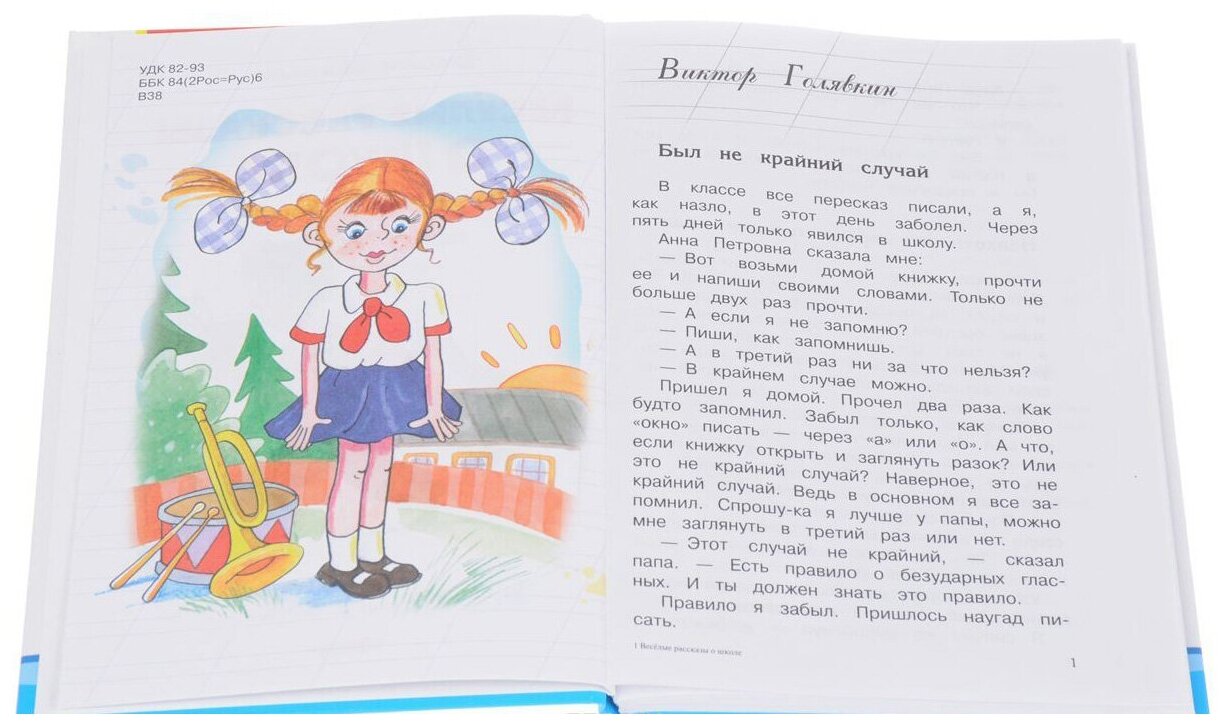 УДК 82-93
ББК 84(2Рос=Рус)6
В38
Виктор Голявкин
Был не крайний случай
В классе все пересказ писали, а я,
как назло, в этот день заболел. Через
пять дней только явился в школу.
Анна Петровна сказала мне:
— Вот возьми домой книжку, прочти
ее и напиши своими словами. Только не
больше двух раз прочти.
— А если я не запомню?
— Пиши, как запомнишь.
— А в третий раз ни за что нельзя?
— В крайнем случае можно.
Пришел я домой. Прочел два раза. Как
будто запомнил. Забыл только, как слово
«окно» писать — через «а» или «о». А что,
если книжку открыть и заглянуть разок? Или
это не крайний случай? Наверное, это не
крайний случай. Ведь в основном я все за-
помнил. Спрошу-ка я лучше у папы, можно
мне заглянуть в третий раз или нет.
— Этот случай не крайний, — сказал
папа. — Есть правило о безударных глас-
ных. И ты должен знать это правило.
Правило я забыл. Пришлось наугад пи-
сать.
1 Весёлые рассказы о школе
1